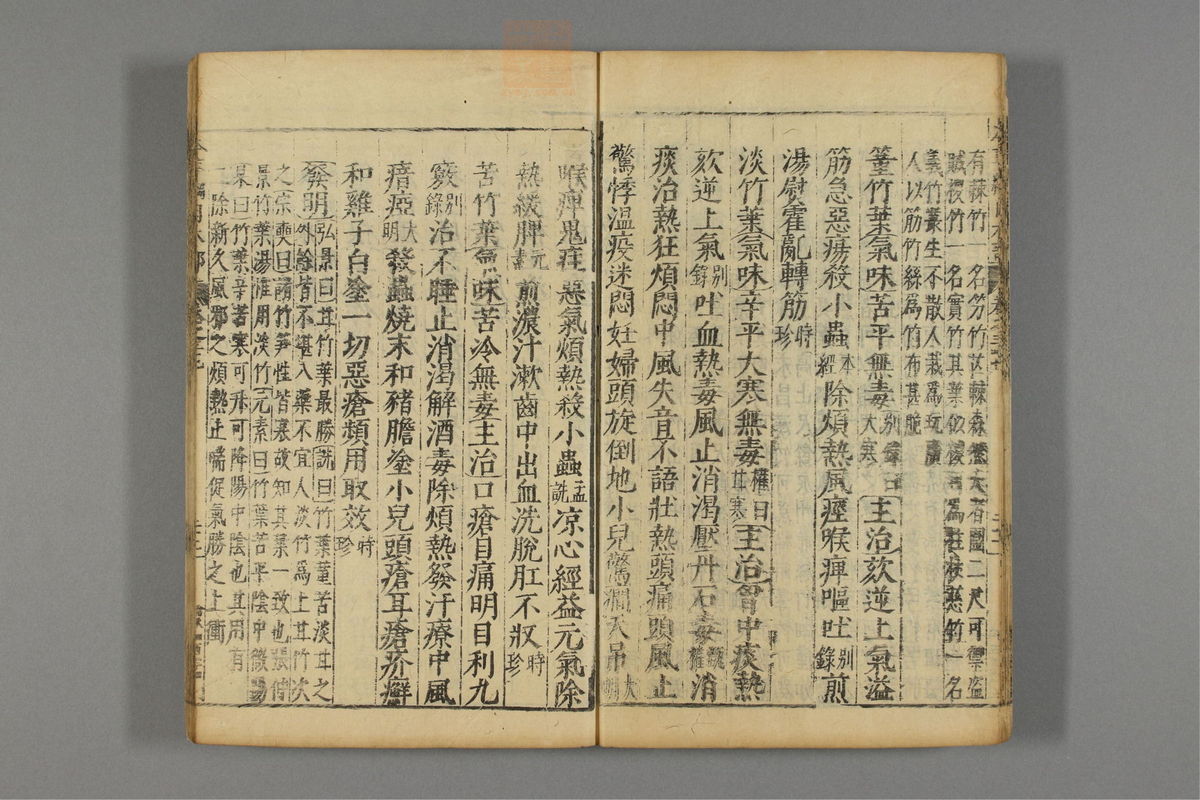 有棘竹一名竻竹芒棘森然大者圍二尺可禦盜
賊椶竹一名實竹其葉似椶可爲柱杖慈竹一名
義竹叢生不散人栽爲玩廣
人以筋竹絲爲竹布甚脆
篁竹葉氣味苦平無毒別錄曰大寒主治欬逆上氣溢
筋急惡瘍殺小蟲本經除煩熱風痙喉痺嘔吐別錄煎
湯熨霍亂轉筋時珍
淡竹葉氣味辛平大寒無毒權曰甘寒主治胷中痰熱
欬逆上氣別錄吐血熱毒風止消渴壓丹石毒甄權消
痰治熱狂煩悶中風失音不語壯熱頭痛頭風止
驚悸溫疫迷悶妊婦頭旋倒地小兒驚癇天吊大明
喉痺鬼疰惡氣煩熱殺小蟲孟詵凉心經益元氣除
熱緩脾元素煎濃汁漱齒中出血洗脫肛不収時珍
苦竹葉氣味苦冷無毒主治口瘡目痛明目利九
竅別錄治不睡止消渴解酒毒除煩熱發汗療中風
瘖瘂大明發蟲燒末和豬膽塗小兒頭瘡耳瘡疥癬
和雞子白塗一切惡瘡頻用取效時珍
發明弘景曰甘竹葉最勝詵曰竹葉菫苦淡甘之
外餘皆不堪入藥不宜人淡竹爲上甘竹次
之宗奭曰諸竹笋性皆寒故知其葉一致也張仲
景竹葉湯惟用淡竹元素曰竹葉苦平陰中微陽
杲曰竹葉辛苦寒可升可降陽中陰也其用有
二除新久風邪之煩熱止喘促氣勝之上衝